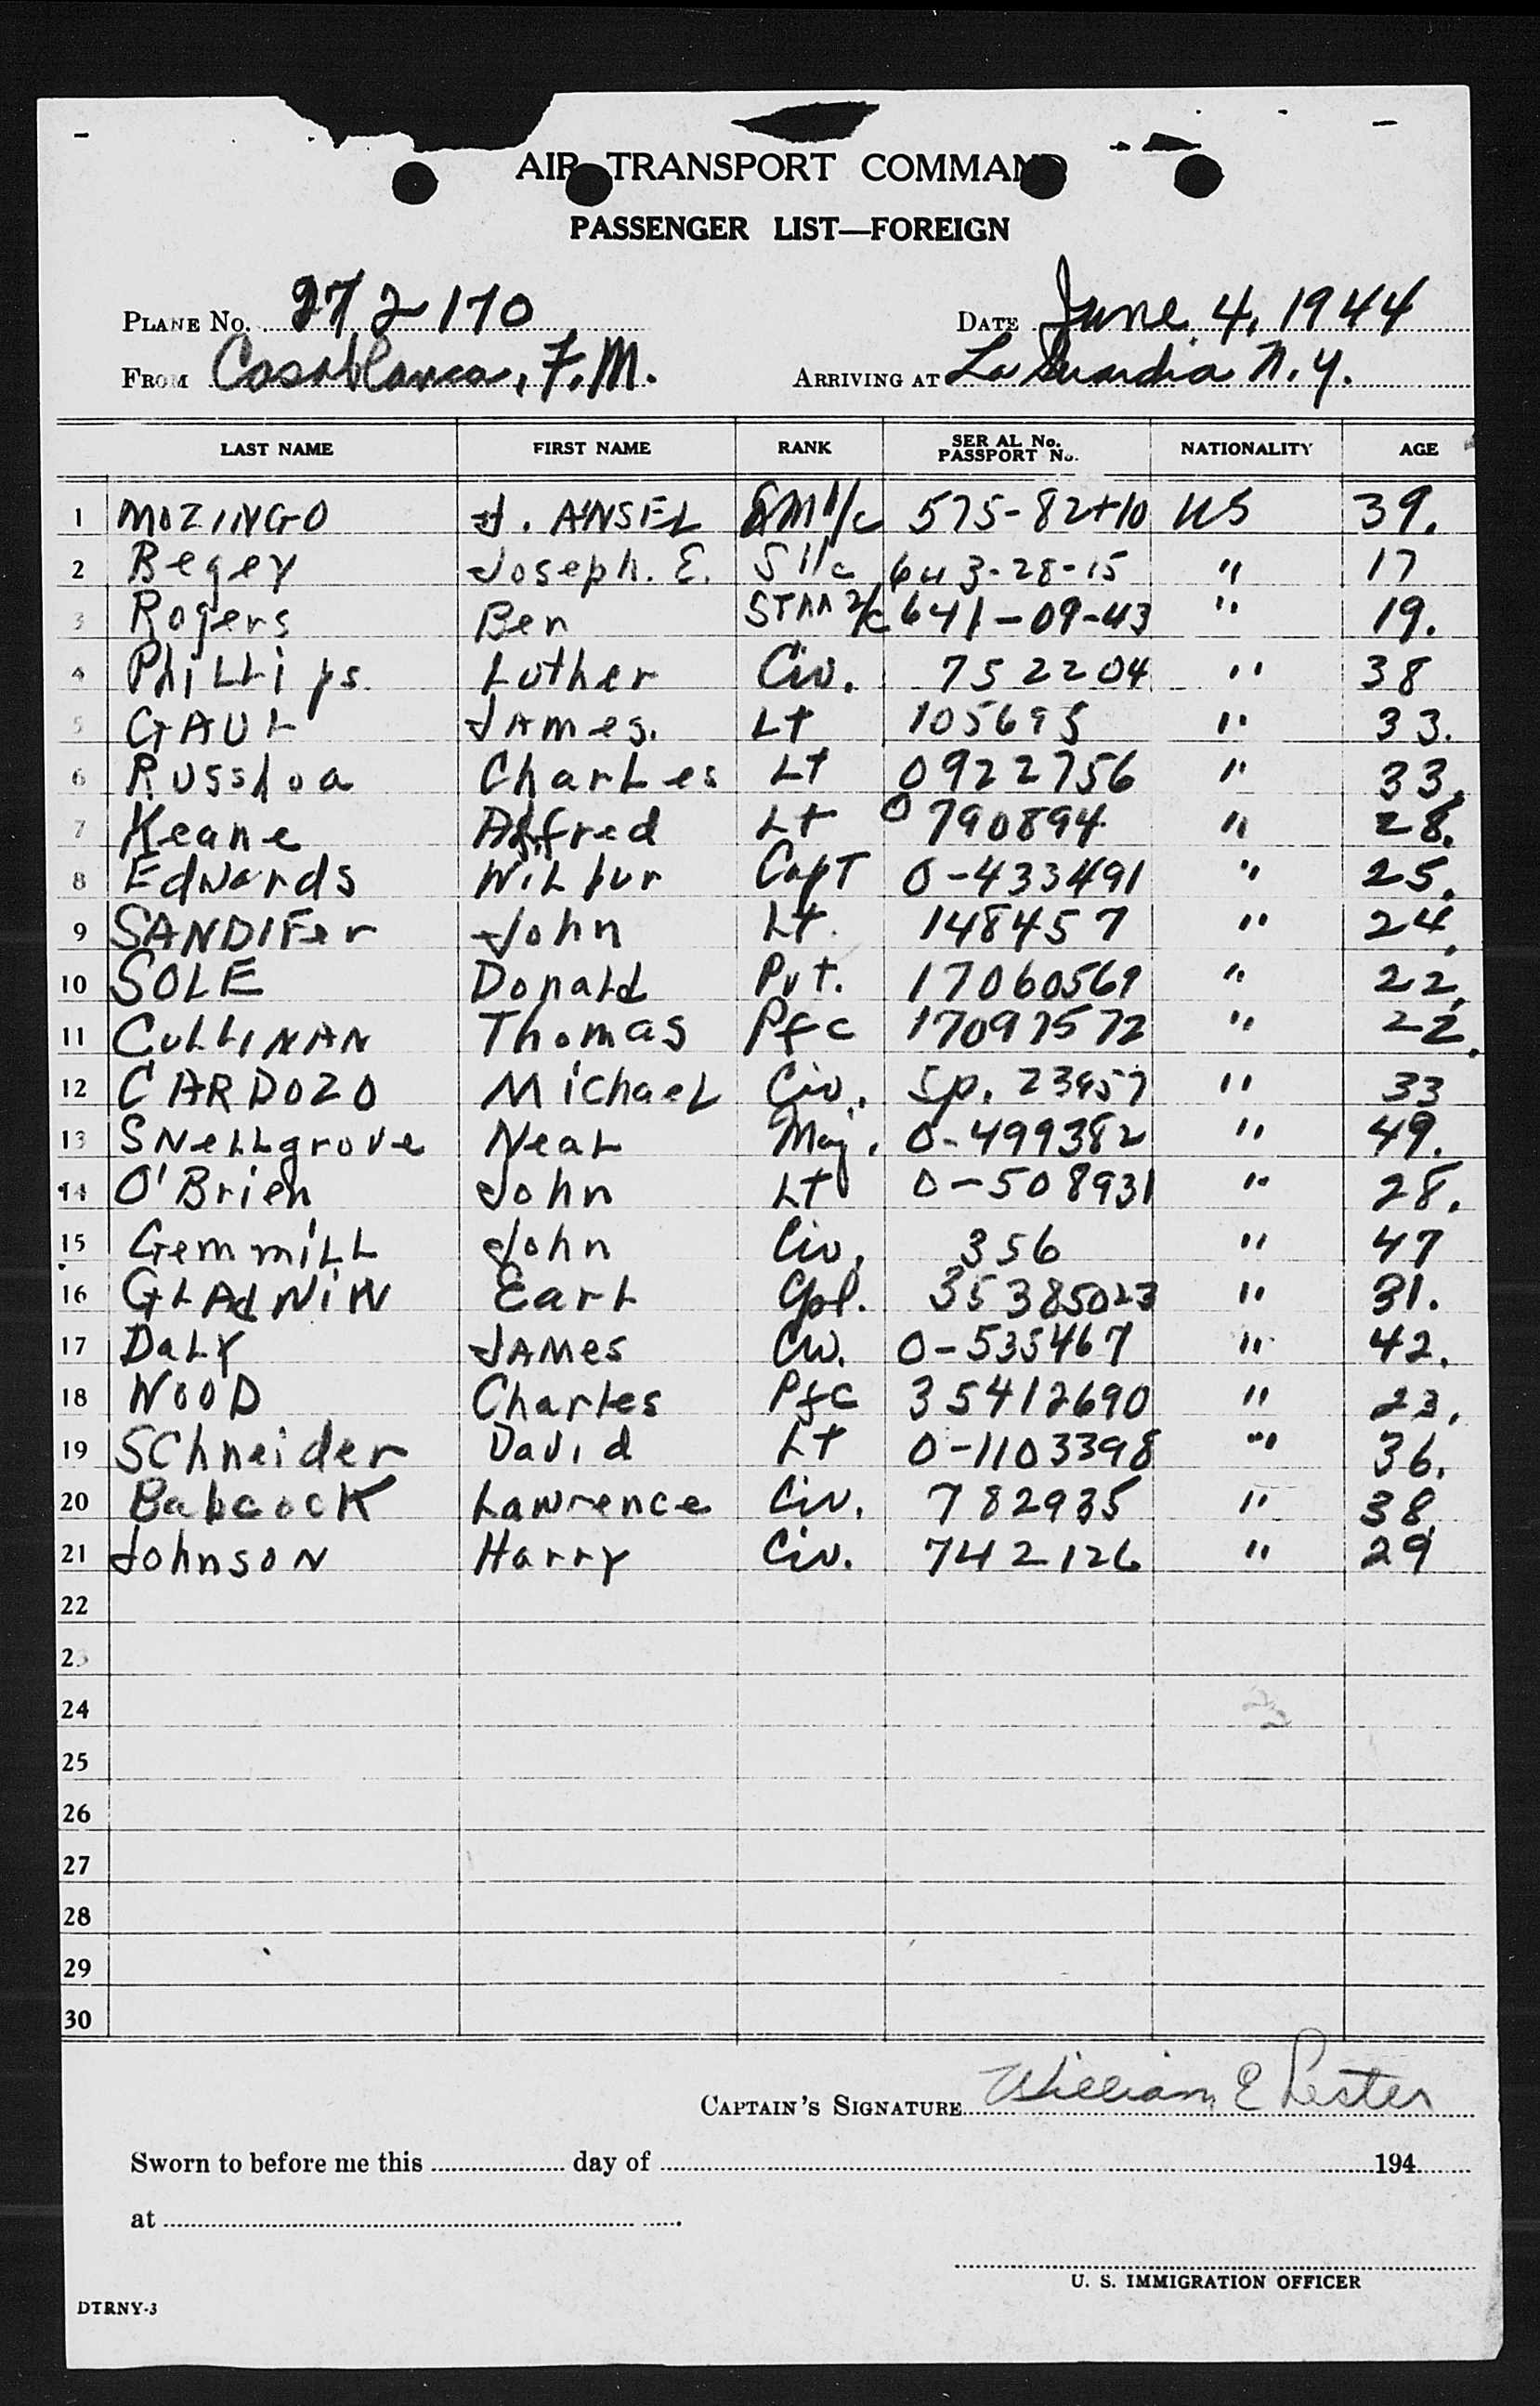 AIR TRANSPORT COMMAND
PASSENGER LIST—FOREIGN
PLANE No. 272170 DATE June 4, 1944
FROM Casablanca, F.M. ARRIVING AT La Guardia N.Y.
LAST NAME FIRST NAME RANK SERIAL No. PASSPORT No. NATIONALITY AGE
1 MOZINGO J. ANSEL 1/c 575-82 10 US 39.
2 Begey Joseph. E. S 1/c 643-28-15 " 17
3 Rogers Ben STM 2/c 641-09-43 " 19.
4 PhiLLips Luther Civ. 752204 " 38
5 GAUL JAmes. Lt 105695 " 33.
6 CharLes Lt 0922756 " 33.
7 Keane Alfred Lt 0790894 " 28.
8 Edwards WiLbur CapT 0-433491 " 25.
9 SANDIFer John Lt. 148457 " 24.
10 SOLE DonaLd Pvt. 17060569 " 22.
11 CuLLINAN Thomas Pfc 17097572 " 22.
12 CARDOZO MichaeL Civ. Sp. 23957 " 33
13 SNeLLgrove NeaL Maj. 0-499382 " 49.
14 O'Brien John Lt 0-508931 " 28.
15 GemmiLL John Civ. 356 " 47
16 GLAdWiN EarL Cpl. 35385023 " 31.
17 DaLY JAMes CW. 0-535467 " 42.
18 WOOD CharLes Pfc 35412690 " 23.
19 SChneider David Lt 0-1103398 " 36.
20 BabcocK Lawrence Civ. 782935 " 38
21 JohnsoN Harry Civ. 742126 " 29
22
23
24
25
26
27
28
29
30
CAPTAIN'S SIGNATURE William E Lester
Sworn to before me this day of 194
at
U. S. IMMIGRATION OFFICER
DTRNY-3